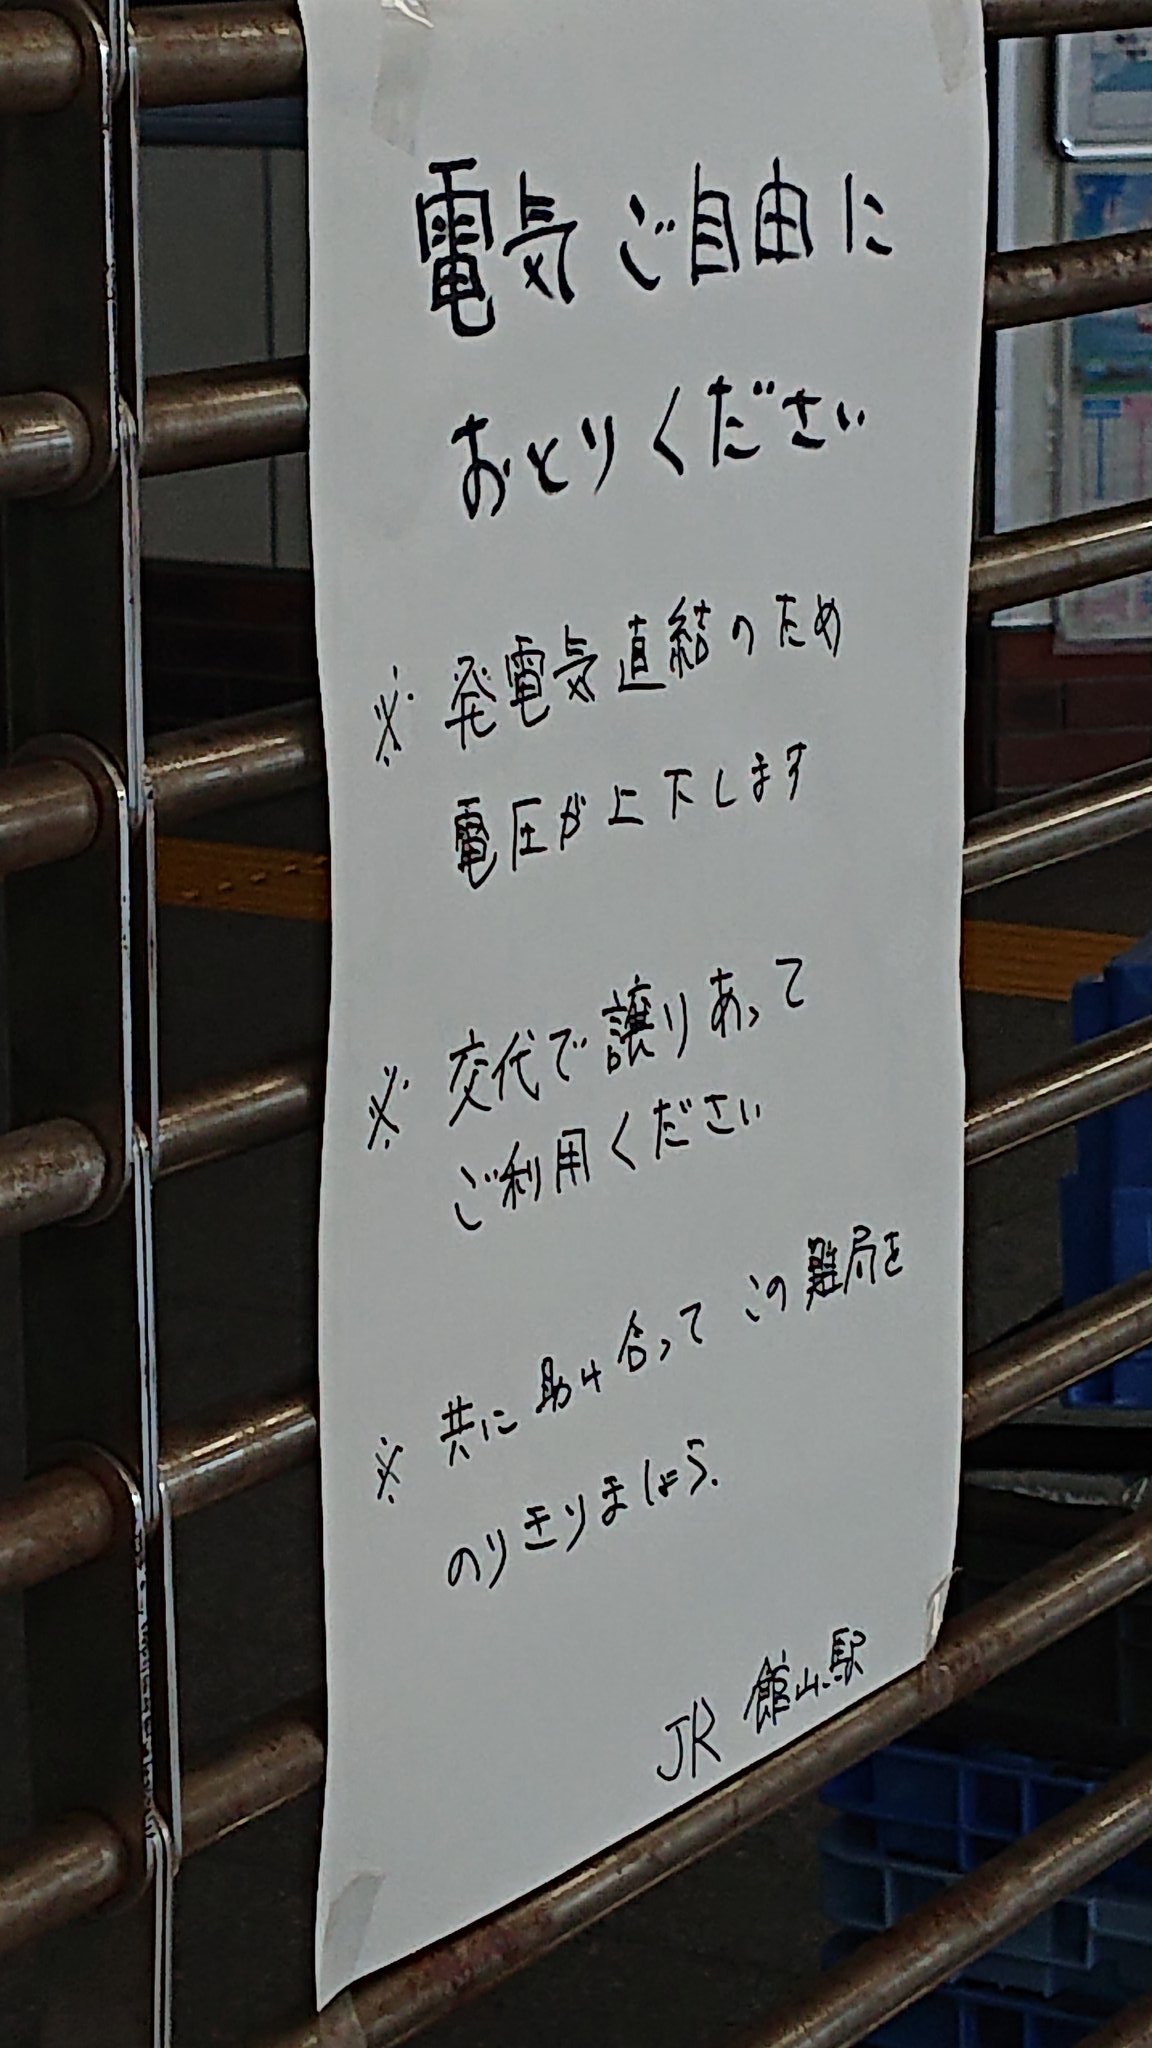 電気ご自由に
おとりください
※ 発電気直結のため
電圧が上下します
※ 交代で譲りあって
ご利用ください
※ 共に助け合って この難局を
のりきりましょう.
JR 館山駅